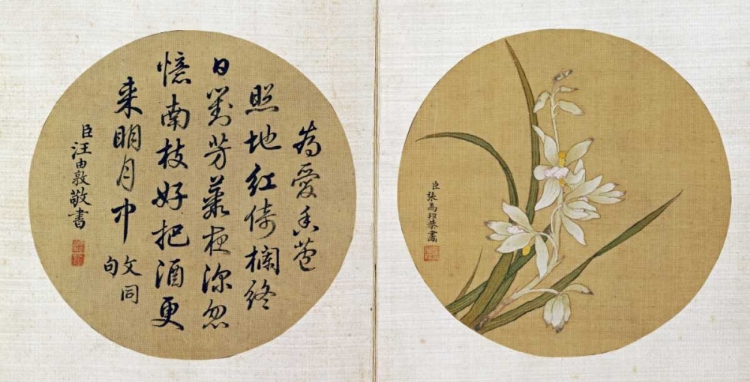 為愛香苞
照地紅倚欄終
日對芳叢夜深忽
憶南枝好把酒更
来明月中
文同
句
臣汪由敦敬書
臣張為邦恭畫